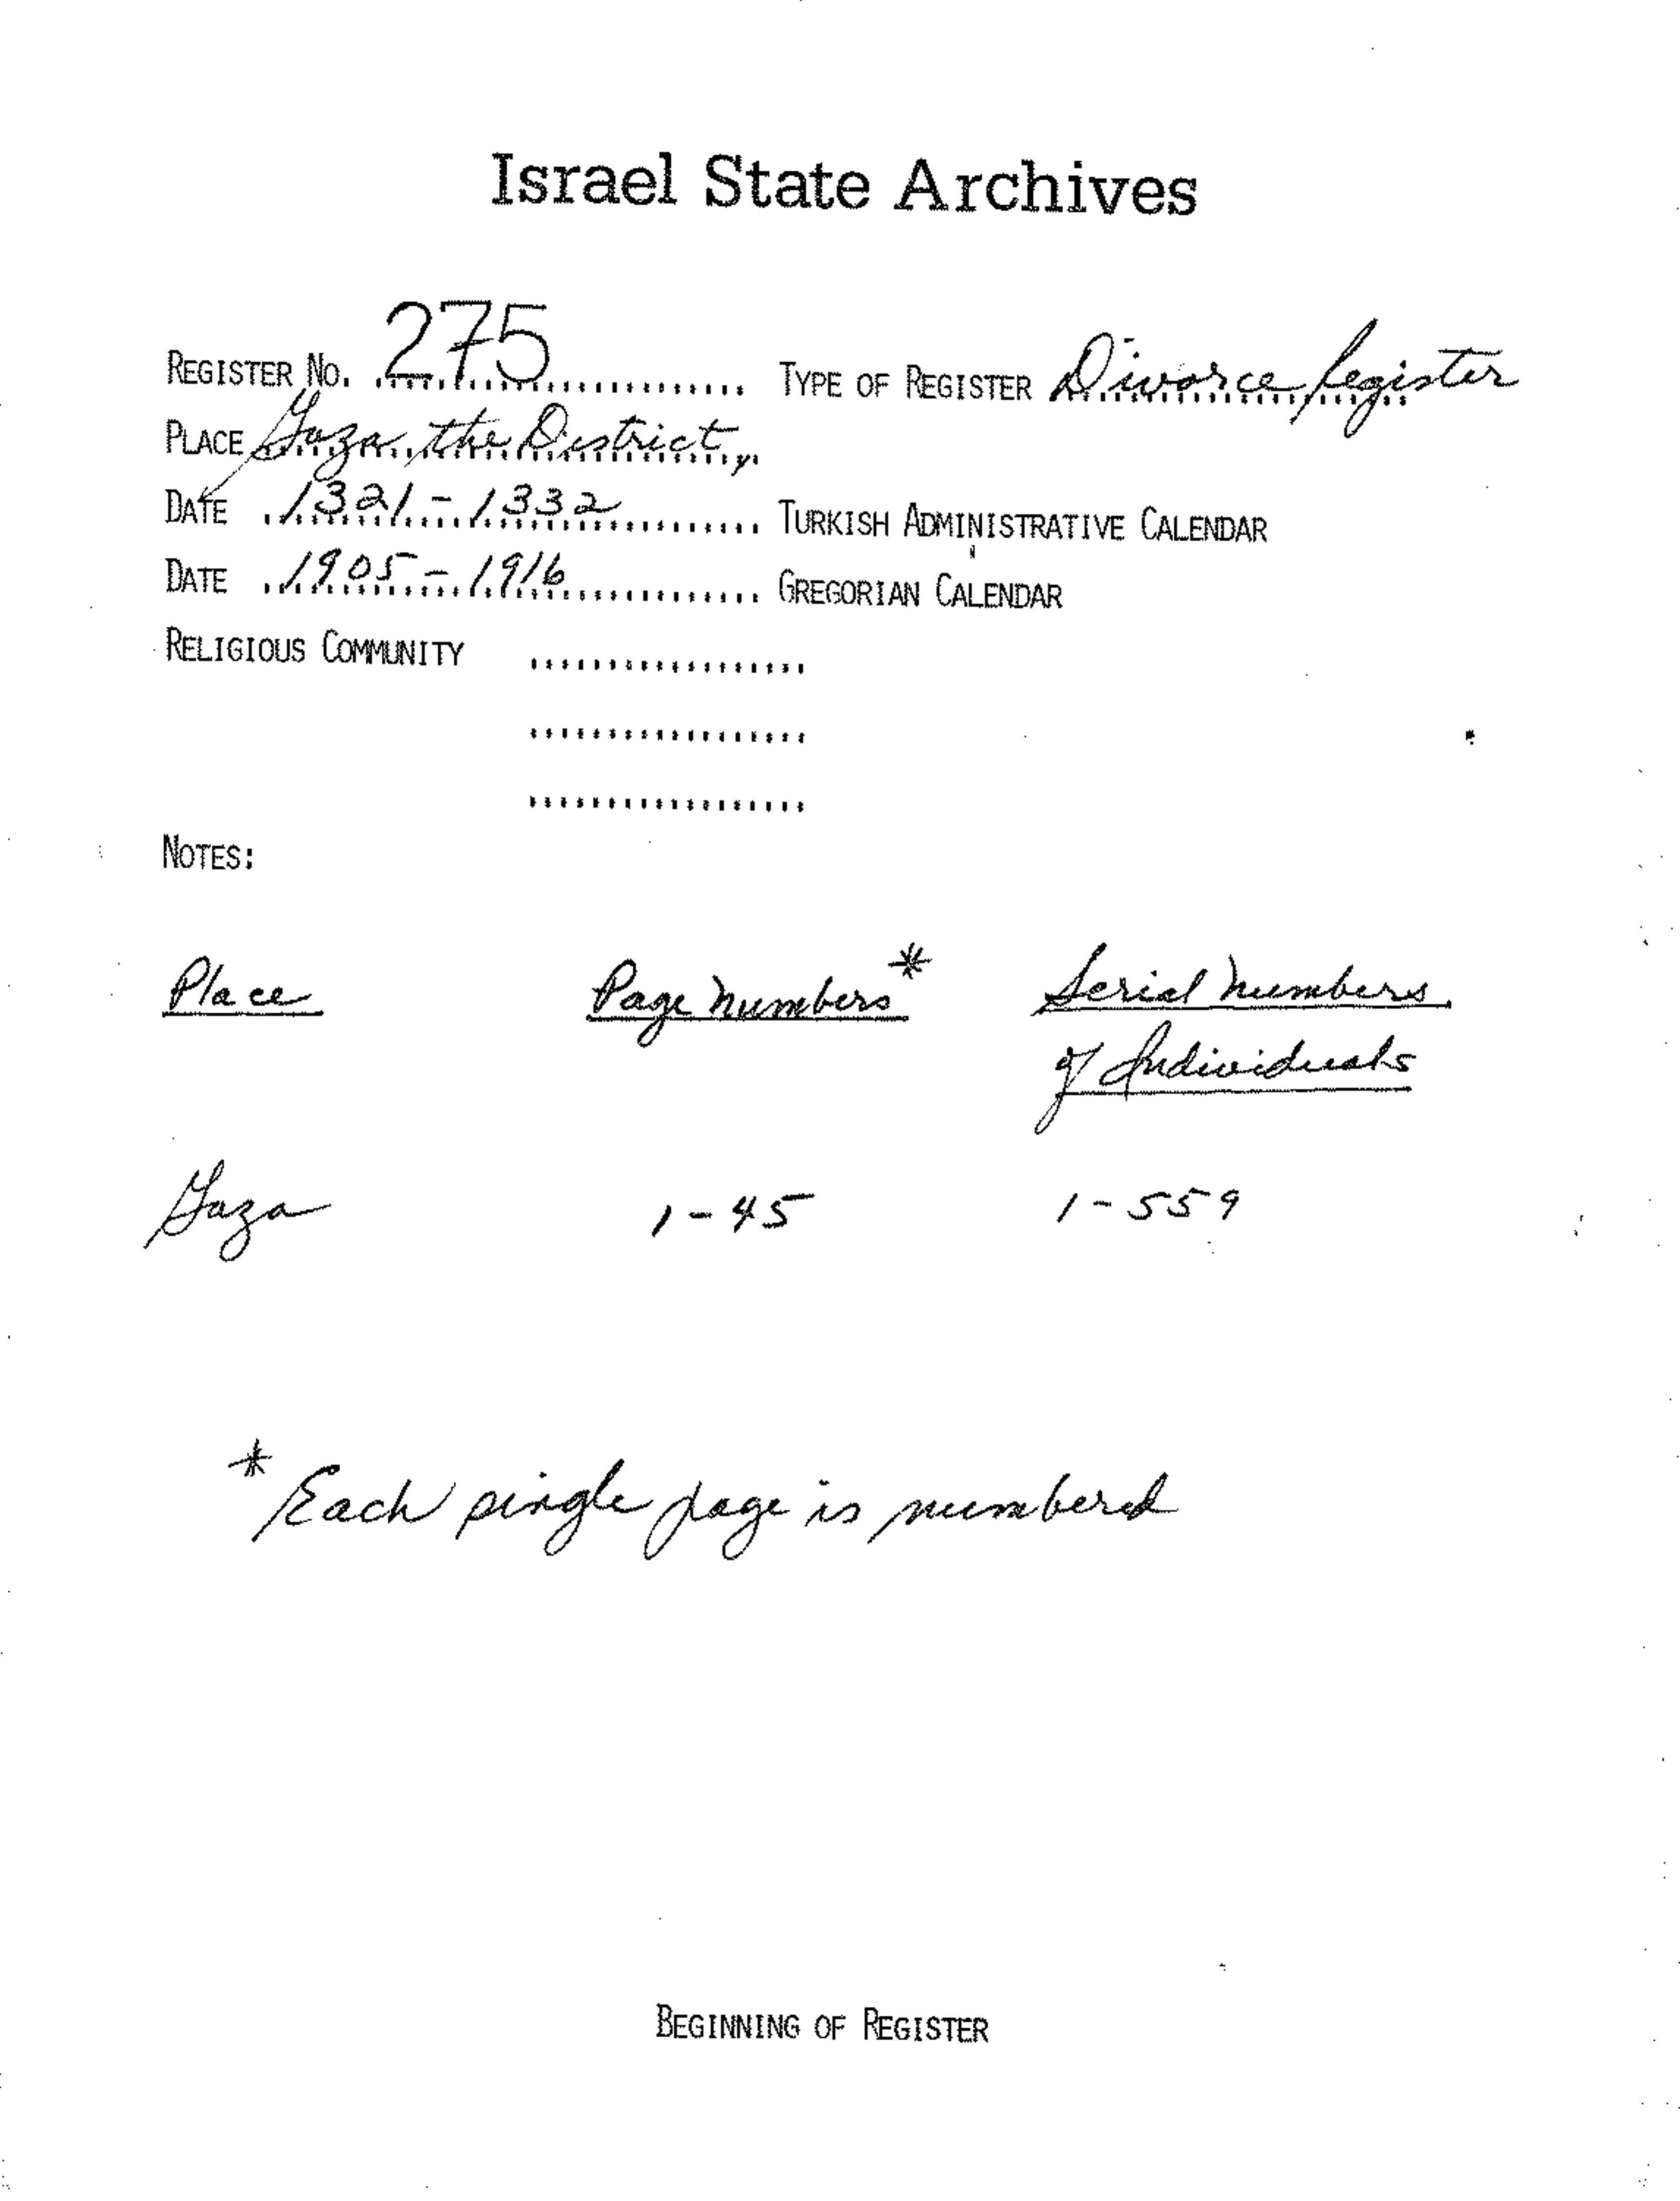 Israel State Archives
REGISTER NO. 275 TYPE OF REGISTER Divorce Register
PLACE Gaza, the District,
DATE 1321-1332 TURKISH ADMINISTRATIVE CALENDAR
DATE 1905-1916 GREGORIAN CALENDAR
RELIGIOUS COMMUNITY
NOTES:
Place Page Numbers* Serial Numbers
of Individuals
Gaza 1-45 1-559
* Each single page is numbered
BEGINNING OF REGISTER